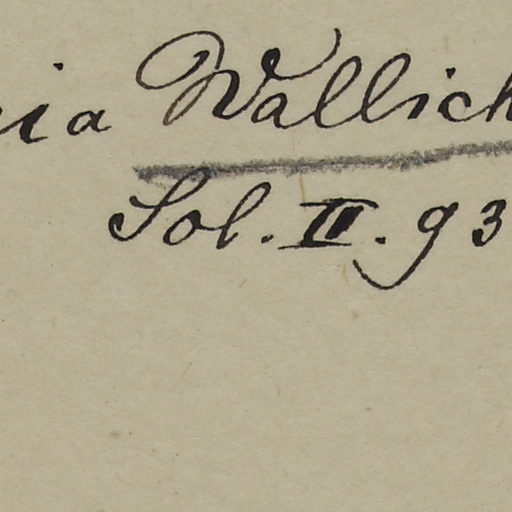 ia Wallich
Sol. II. 93